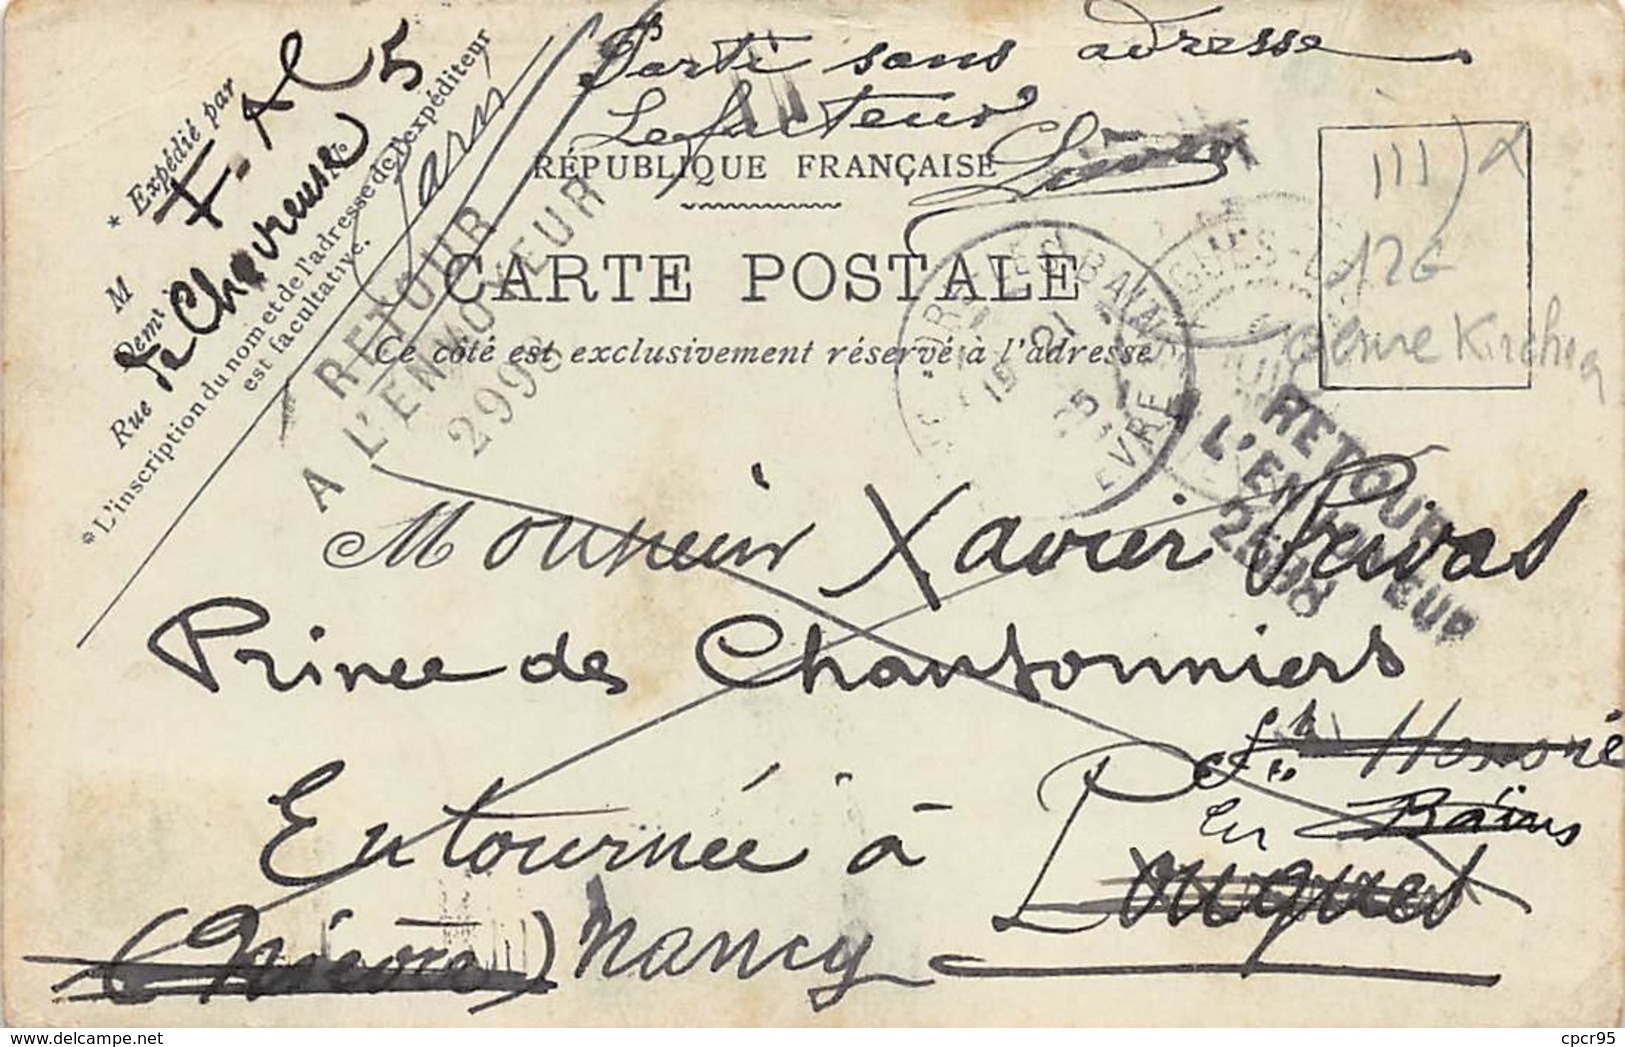 Parti sans adresse
Le facteur
RÉPUBLIQUE FRANÇAISE
CARTE POSTALE
Ce côté est exclusivement réservé à l'adresse
* Expédié par
M
Demt
Rue
de Chevreuse
5
Paris
No
* L'inscription du nom et de l'adresse de l'expéditeur
est facultative.
RETOUR
A L'ENVOYEUR
2998
21
25
RETOUR
L'ENVOYEUR
2598
III
12€
genre Kirchner
Monsieur Xavier Privas
Prince des Chansonniers
En tournée à
Pougues
St Honoré
les
Bains
(Nièvre) Nancy
cpcr95